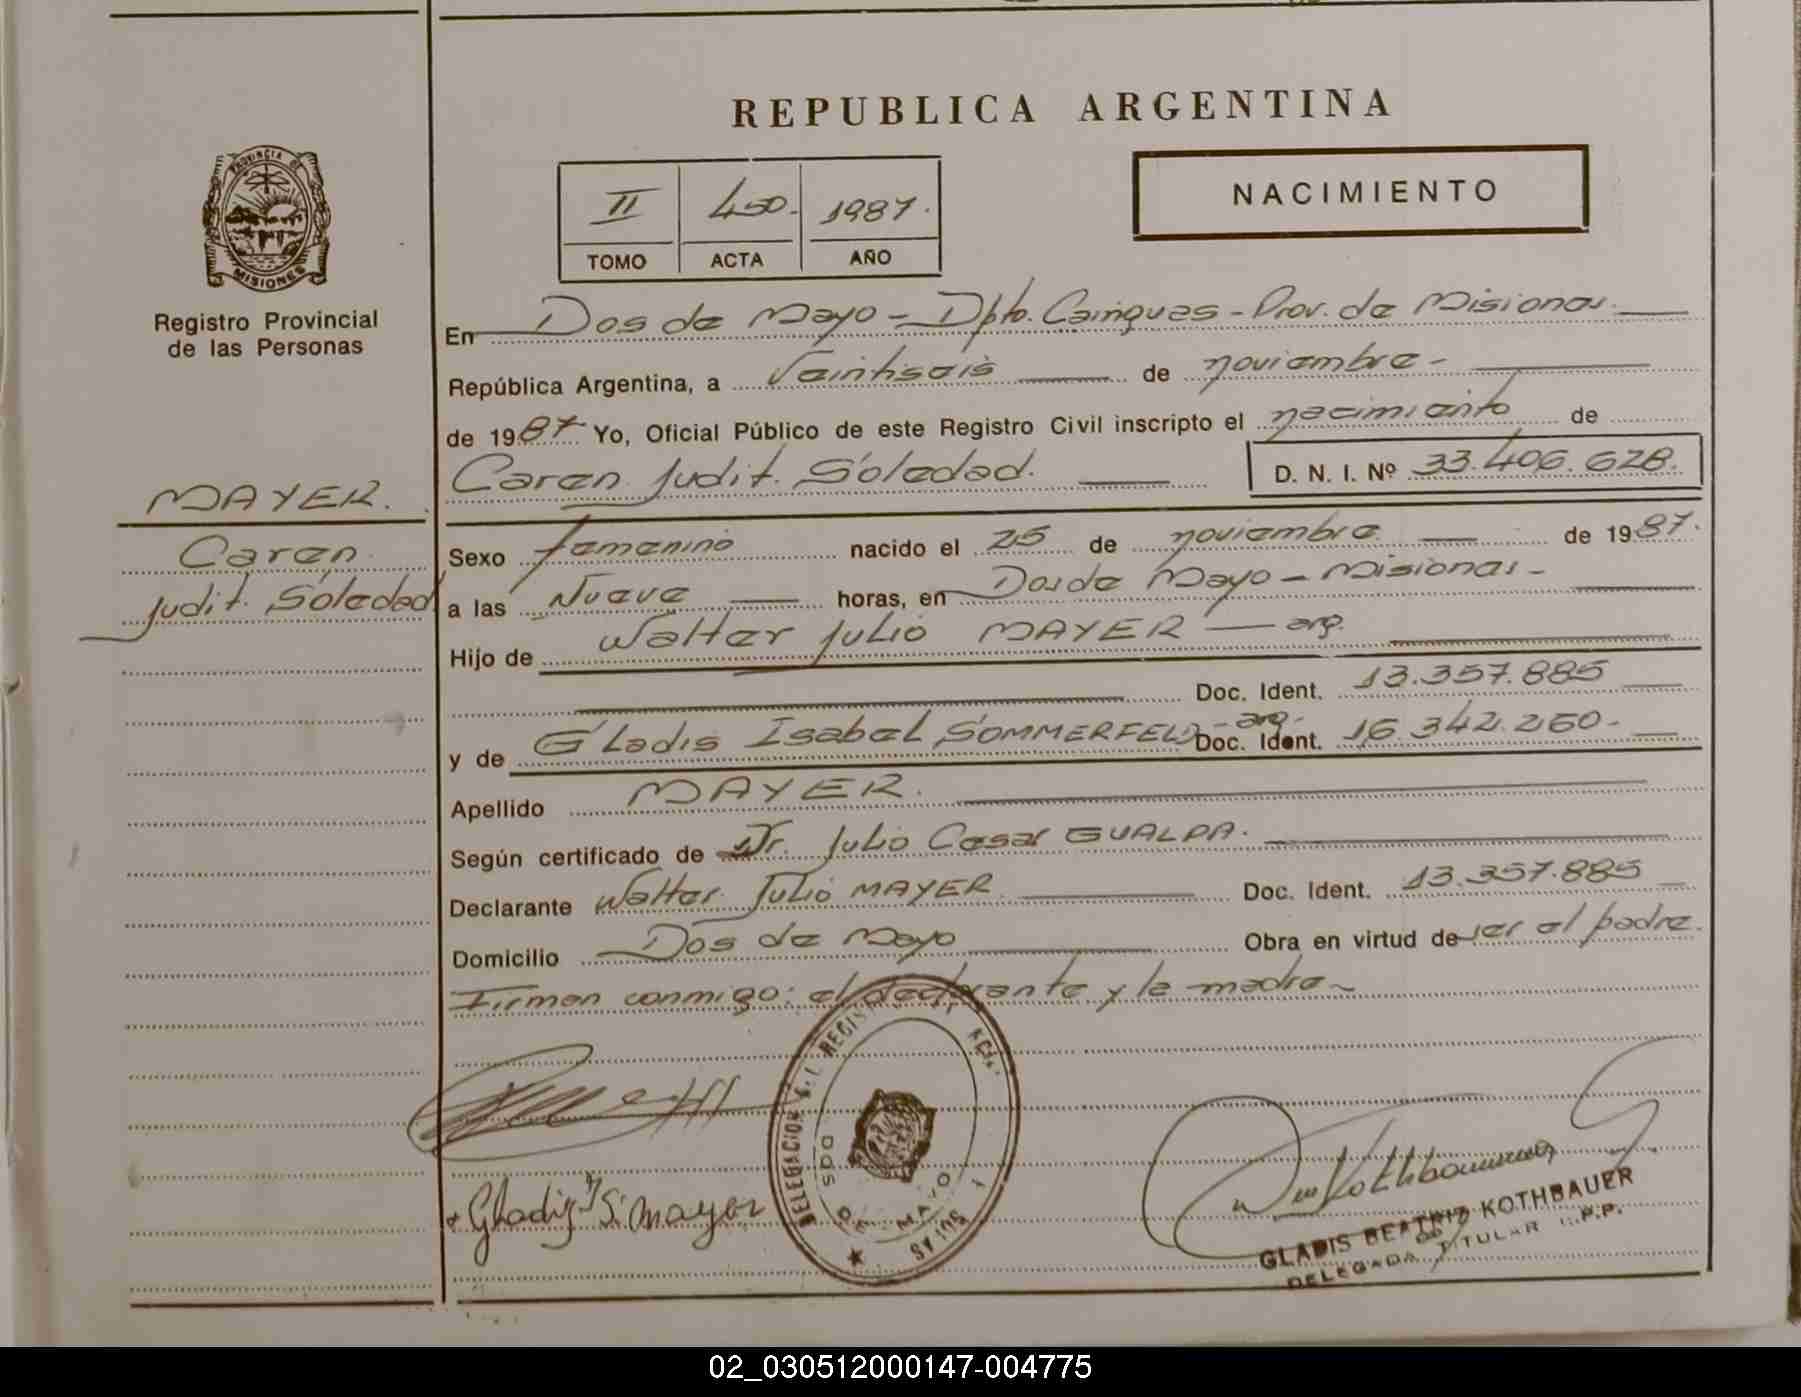 REPUBLICA ARGENTINA
PROVINCIA DE
MISIONES
Registro Provincial
de las Personas
II 450. 1987.
TOMO ACTA AÑO
NACIMIENTO
En Dos de Mayo - Dpto. Cainguas - Prov. de Misiones.
República Argentina, a Veintiseis de noviembre -
de 1987 Yo, Oficial Público de este Registro Civil inscripto el nacimiento de
Caren Judit. Soledad. D. N. I. Nº 33.406.628.
MAYER.
Caren
Judit. Soledad
Sexo femenino nacido el 25 de noviembre de 1987.
a las Nueve horas, en Dos de Mayo - Misiones -
Hijo de Walter Julio MAYER — arg.
Doc. Ident. 13.357.885
y de Gladis Isabel SOMMERFELD - arg - Doc. Ident. 16.342.260 -
Apellido MAYER.
Según certificado de Dr. Julio Cesar GUALDA.
Declarante Walter Julio MAYER Doc. Ident. 13.357.885
Domicilio Dos de Mayo Obra en virtud de ser el padre.
Firman conmigo: el declarante y la madre ~
DELEGACION
DOS DE MAYO
Gladis S. Mayer
Kothbauer
GLADIS BEATRIZ KOTHBAUER
DELEGADA TITULAR
02_030512000147-004775